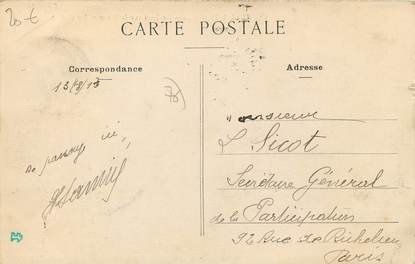 20 €
CARTE POSTALE
Correspondance
Adresse
de passage ici,
Monsieur
L Sicot
Secrétaire Général
de la Participation
92 Rue de Richelieu
Paris